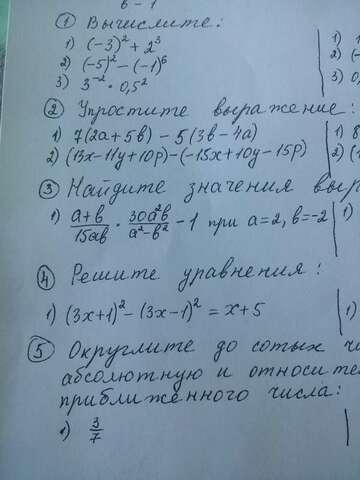 в - 1
① Вычислите:
1) (-3)² + 2³
2) (-5)² - (-1)⁶
3) 3⁻² · 0,5²
② Упростите выражение:
1) 7(2a + 5в) - 5(3в - 4a)
2) (13x - 11y + 10p) - (-15x + 10y - 15p)
③ Найдите значения выра
1) (a + в)/(15aв) · (30a²в)/(a² - в²) - 1 при a = 2, в = -2
④ Решите уравнения:
1) (3x + 1)² - (3x - 1)² = x + 5
⑤ Округлите до сотых чи
абсолютную и относител
приближенного числа:
1) 3/7